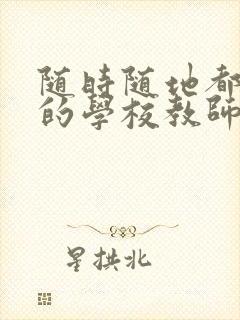 随時随地都
的學校教師
星拱北